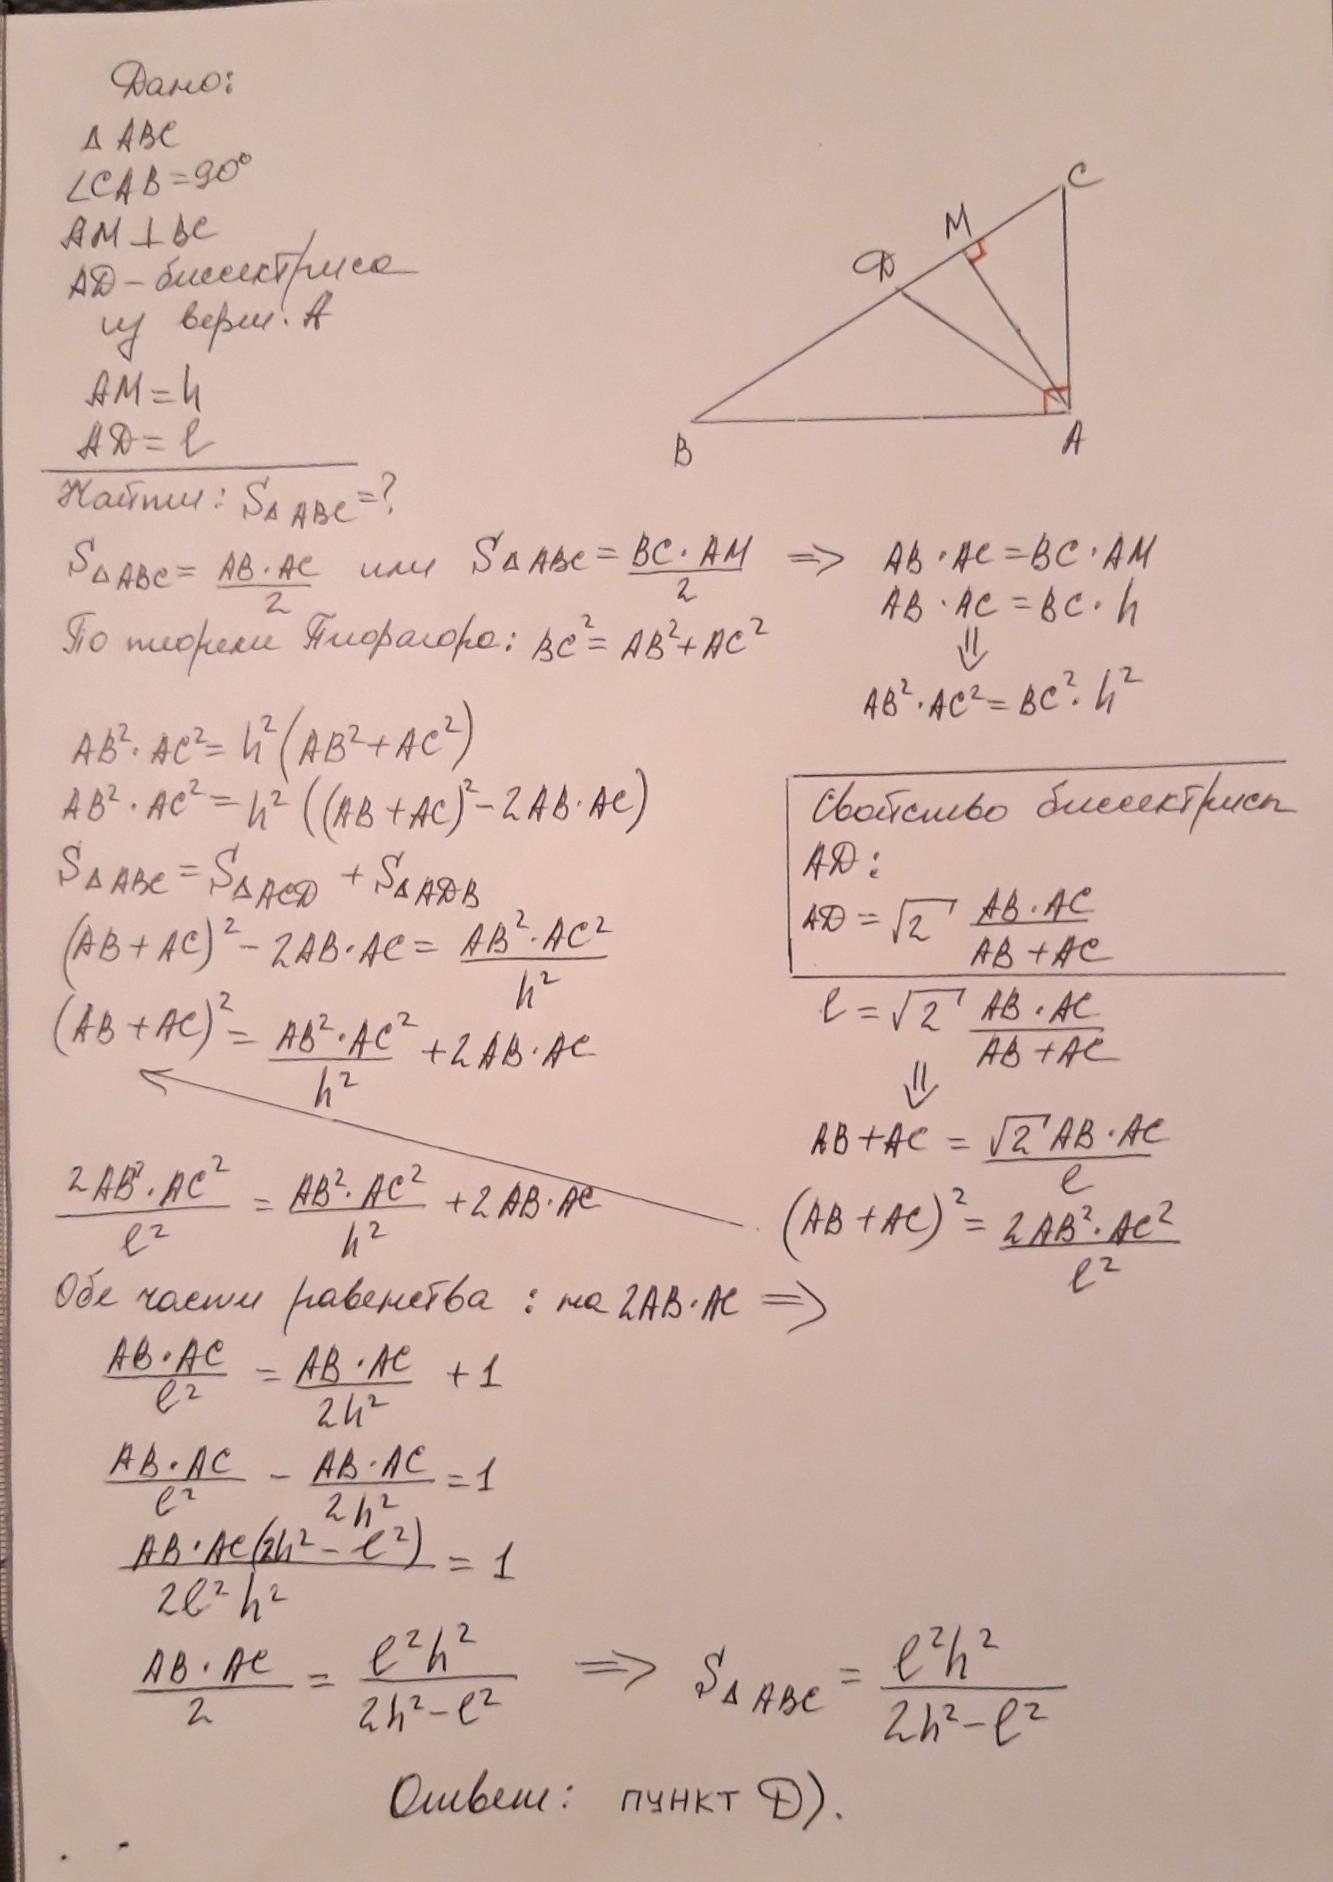 Дано:
Δ ABC
∠CAB = 90°
AM ⊥ BC
AD – биссектриса
из верш. A
AM = h
AD = l
Найти: S_{Δ ABC} = ?
C
M
D
B
A
S_{Δ ABC} = \frac{AB · AC}{2} или S_{Δ ABC} = \frac{BC · AM}{2} ⇒ AB · AC = BC · AM
AB · AC = BC · h
⇓
По теореме Пифагора: BC² = AB² + AC²
AB² · AC² = BC² · h²
AB² · AC² = h² (AB² + AC²)
AB² · AC² = h² ((AB + AC)² – 2AB · AC)
S_{Δ ABC} = S_{Δ ACD} + S_{Δ ADB}
(AB + AC)² – 2AB · AC = \frac{AB² · AC²}{h²}
(AB + AC)² = \frac{AB² · AC²}{h²} + 2AB · AC
Свойство биссектрисы
AD:
AD = √2 \frac{AB · AC}{AB + AC}
l = √2 \frac{AB · AC}{AB + AC}
⇓
AB + AC = \frac{√2 AB · AC}{l}
(AB + AC)² = \frac{2AB² · AC²}{l²}
\frac{2AB² · AC²}{l²} = \frac{AB² · AC²}{h²} + 2AB · AC
Обе части равенства : на 2AB · AC ⇒
\frac{AB · AC}{l²} = \frac{AB · AC}{2h²} + 1
\frac{AB · AC}{l²} – \frac{AB · AC}{2h²} = 1
\frac{AB · AC(2h² – l²)}{2l² h²} = 1
\frac{AB · AC}{2} = \frac{l²h²}{2h² – l²} ⇒ S_{Δ ABC} = \frac{l²h²}{2h² – l²}
Ответ: пункт D).